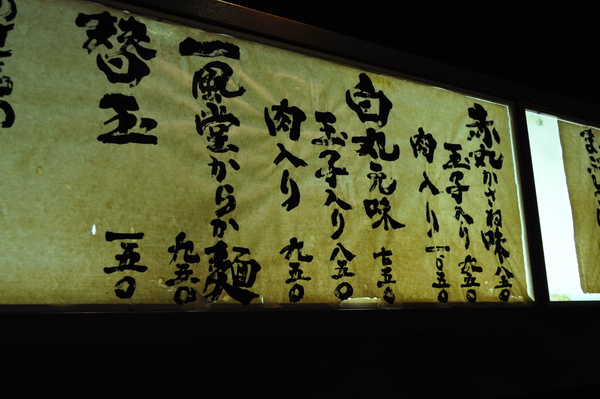 赤丸かさね味 八五〇
玉子入り 九五〇
肉入り 一〇五〇
白丸元味 七五〇
玉子入り 八五〇
肉入り 九五〇
一風堂からか麺
九五〇
替玉 一五〇